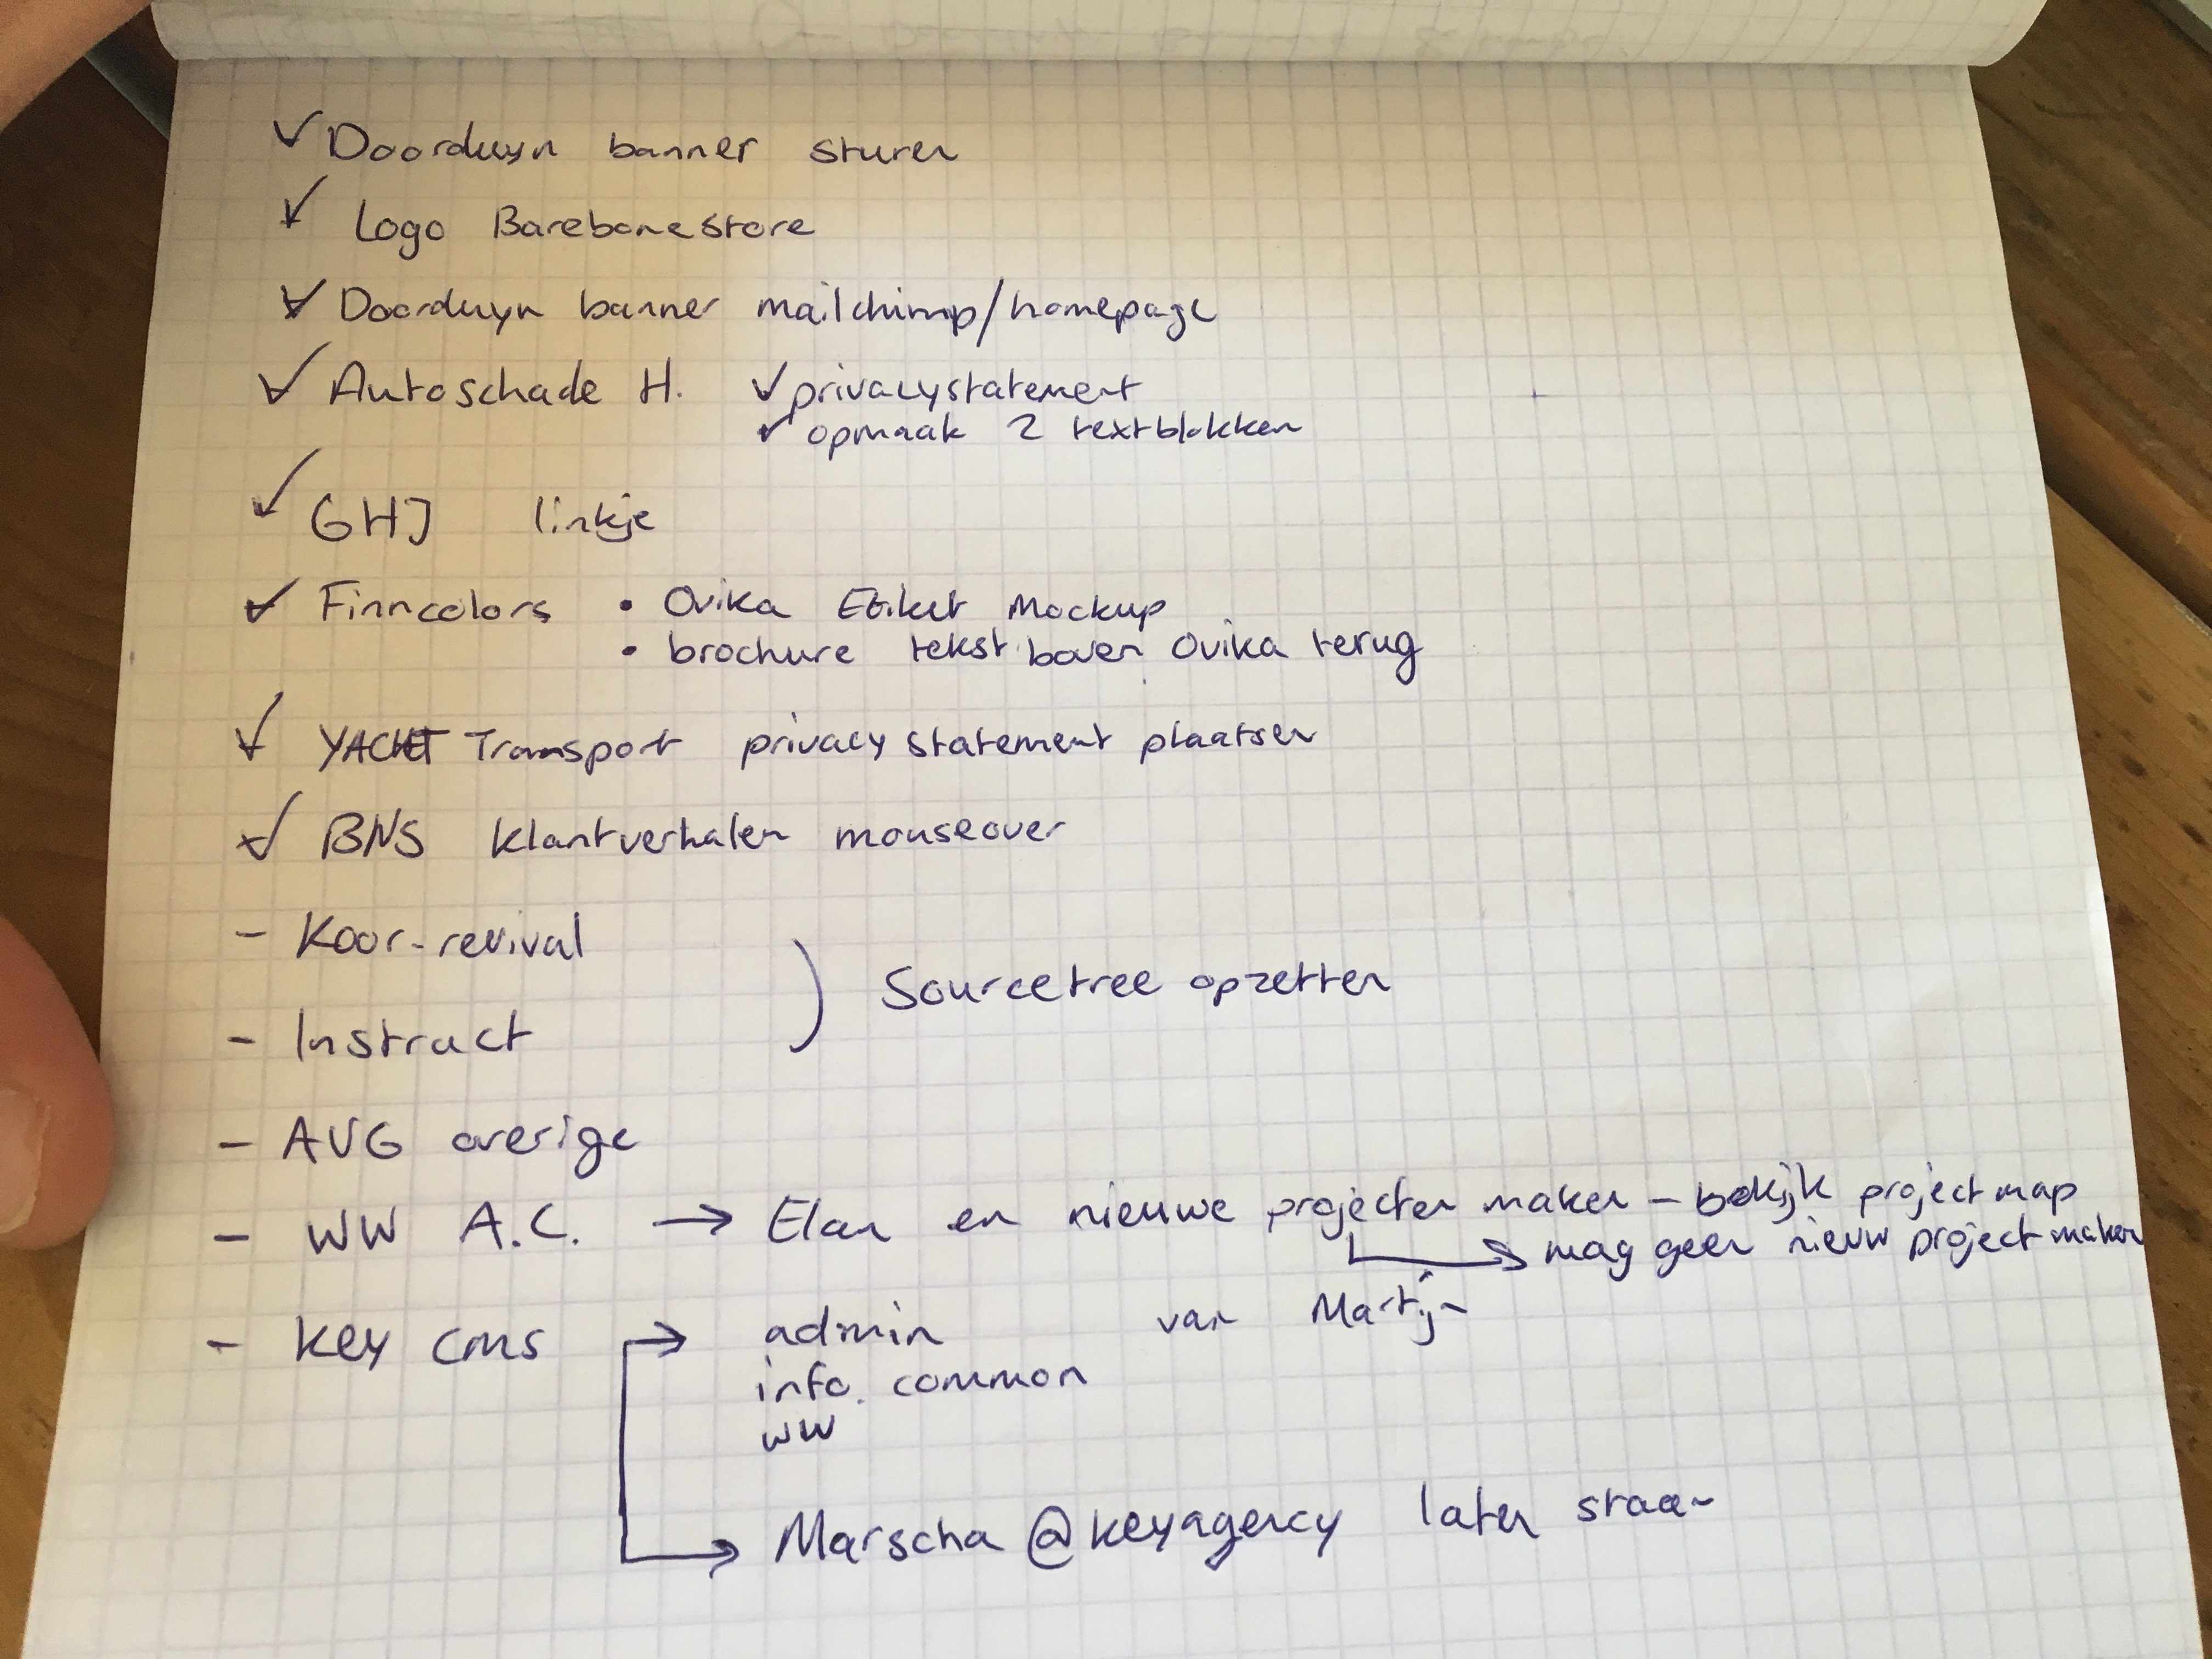 ✓ Doorduyn banner sturen
✓ Logo Barebonestore
✓ Doorduyn banner mailchimp/homepage
✓ Autoschade H. ✓ privacystatement
✓ opmaak 2 textblokken
✓ GHJ linkje
✓ Finncolors • Ovika Etiket Mockup
• brochure tekst boven Ovika terug
✓ YACHT Transport privacy statement plaatsen
✓ BNS klantverhalen mouseover
- Koor-revival
Sourcetree opzetten
- Instruct
- AVG overige
- WW A.C. → Elan en nieuwe projecten maken - bekijk projectmap
→ mag geen nieuw project maken
van Martijn
- Key cms → admin
info. common
ww
→ Marscha @keyagency laten staan